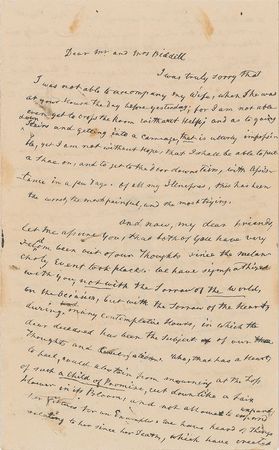 Dear Mr and Mrs Biddell
I was truly sorry that
I was not able to accompany my Wife, when She was
at your house the day before yesterday; for I am not able
even yet to cross the Room without Help; and as to going
down Stairs and getting into a Carriage, that is utterly impossi-
ble, yet I am not without Hope, that I shall be able to put
a Shoe on, and to get to the door downstairs, with Assis-
tance in a few days. Of all my Illnesses, this has been
the worst, the most painful, and the most trying.
And now, my dear Friends,
let me assure you, that both of you have very
seldom been out of our Thoughts since the melan-
choly Event took place. We have sympathised
with you, not with the Sorrow of the World,
on the occasion, but with the Sorrow of the Heart;
during many contemplative Hours, in which the
dear deceased has been the Subject of our
Thoughts and Who, that has a Heart
to feel, could abstain from mourning at the Loss
of such a Child of Promise, cut down like a fair
Flower in its Bloom, and not allowed to expand
for an Example. We have heard of things
relating to her since her Death, which have created